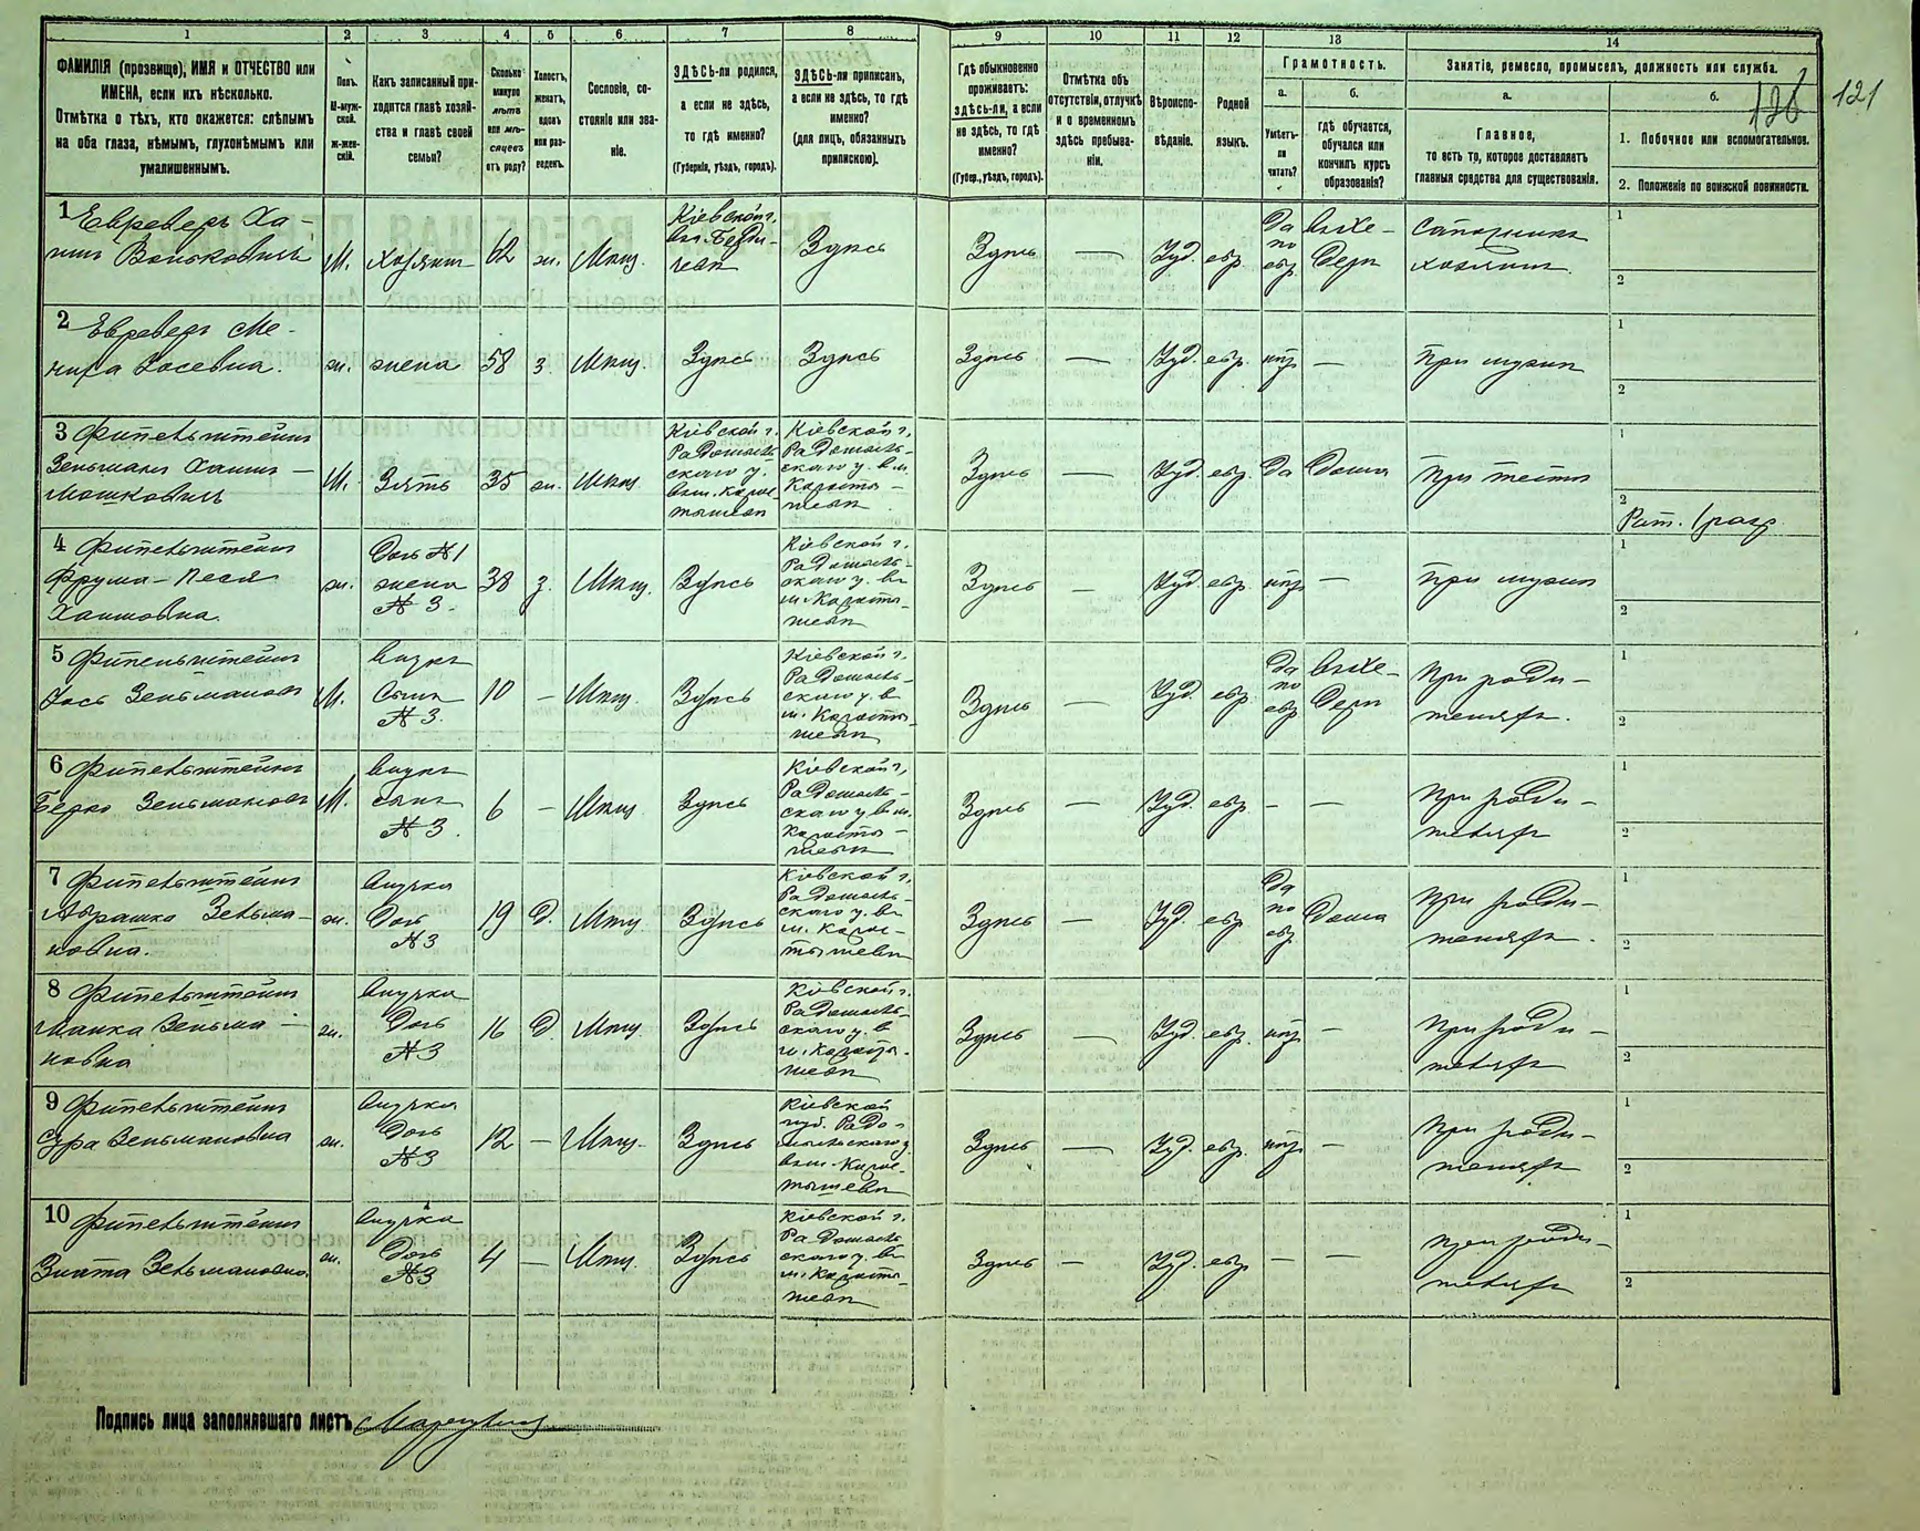 1 2 3 4 5 6 7 8 9 10 11 12 13 14
ФАМИЛІЯ (прозвище), ИМЯ и ОТЧЕСТВО или
ИМЕНА, если ихъ нѣсколько.
Отмѣтка о тѣхъ, кто окажется: слѣпымъ
на оба глаза, нѣмымъ, глухонѣмымъ или
умалишеннымъ.
Полъ.
М-муж-
ской.
ж-жен-
скій.
Какъ записанный при-
ходится главѣ хозяй-
ства и главѣ своей
семьи?
Сколько
минуло
лѣтъ
или мѣ-
сяцевъ
отъ роду?
Холостъ,
женатъ,
вдовъ
или раз-
веденъ.
Сословіе, со-
стояніе или зва-
ніе.
ЗДѢСЬ-ли родился,
а если не здѣсь,
то гдѣ именно?
(Губернія, уѣздъ, городъ).
ЗДѢСЬ-ли приписанъ,
а если не здѣсь, то гдѣ
именно?
(для лицъ, обязанныхъ
припискою).
Гдѣ обыкновенно
проживаетъ:
здѣсь-ли, а если
не здѣсь, то гдѣ
именно?
(Губер., уѣздъ, городъ).
Отмѣтка объ
отсутствіи, отлучкѣ
и о временномъ
здѣсь пребыва-
ніи.
Вѣроиспо-
вѣданіе.
Родной
языкъ.
Грамотность.
а. б.
Умѣетъ-
ли
читать?
гдѣ обучается,
обучался или
кончилъ курсъ
образованія?
Занятіе, ремесло, промыселъ, должность или служба.
а. б.
126 121
Главное,
то есть то, которое доставляетъ
главныя средства для существованія.
1. Побочное или вспомогательное.
2. Положеніе по воинской повинности.
1 Ха-
М. Хозяинъ 62 ж. Мѣщ. Кіевской г. Здѣсь Здѣсь — Іуд. евр. Да по евр. въ хе-дерѣ
хозяинъ.
1
2
2 Ме-
Іосевна. ж. жена 58 з. Мѣщ. Здѣсь Здѣсь Здѣсь — Іуд. евр. нѣтъ — При мужѣ
1
2
3 Финкельштейнъ
Зельманъ Хаимъ-
Мошковичъ М. Зять 35 ж. Мѣщ. Кіевской г. Радомысль-скаго у. въ м. Коростышевѣ Кіевской г. Радомысль-скаго у. въ м. Коростышевѣ Здѣсь — Іуд. евр. Да Дома При тестѣ
1
2
Рат. 1 разр.
4 Финкельштейнъ
Фрума-Песя
Хаимовна. ж. Дочь № 1 жена № 3. 38 з. Мѣщ. Здѣсь Кіевской г. Радомысль-скаго у. въ м. Коростышевѣ Здѣсь — Іуд. евр. нѣтъ — При мужѣ
1
2
5 Финкельштейнъ
Іось Зельмановъ М. Внукъ Сынъ № 3. 10 — Мѣщ. Здѣсь Кіевской г. Радомысль-скаго у. въ м. Коростышевѣ Здѣсь — Іуд. евр. Да по евр. въ хе-дерѣ При роди-теляхъ.
1
2
6 Финкельштейнъ
Берко Зельмановъ М. Внукъ сынъ № 3. 6 — Мѣщ. Здѣсь Кіевской г. Радомысль-скаго у. въ м. Коростышевѣ Здѣсь — Іуд. евр. — — При роди-теляхъ
1
2
7 Финкельштейнъ
Зельма-
новна. ж. Внучка Дочь № 3 19 Д. Мѣщ. Здѣсь Кіевской г. Радомысль-скаго у. въ м. Коростышевѣ Здѣсь — Іуд. евр. Да по евр. Дома При роди-теляхъ.
1
2
8 Финкельштейнъ
Зельма-
новна ж. Внучка Дочь № 3 16 Д. Мѣщ. Здѣсь Кіевской г. Радомысль-скаго у. въ м. Коростышевѣ Здѣсь — Іуд. евр. нѣтъ — При роди-теляхъ
1
2
9 Финкельштейнъ
Сура Зельмановна ж. Внучка Дочь № 3 12 — Мѣщ. Здѣсь Кіевской губ. Радо-мысльскаго у. въ м. Коростышевѣ Здѣсь — Іуд. евр. нѣтъ — При роди-теляхъ
1
2
10 Финкельштейнъ
Злата Зельмановна. ж. Внучка Дочь № 3 4 — Мѣщ. Здѣсь Кіевской г. Радомысль-скаго у. въ м. Коростышевѣ Здѣсь — Іуд. евр. — — При роди-теляхъ
1
2
Подпись лица заполнявшаго листъ